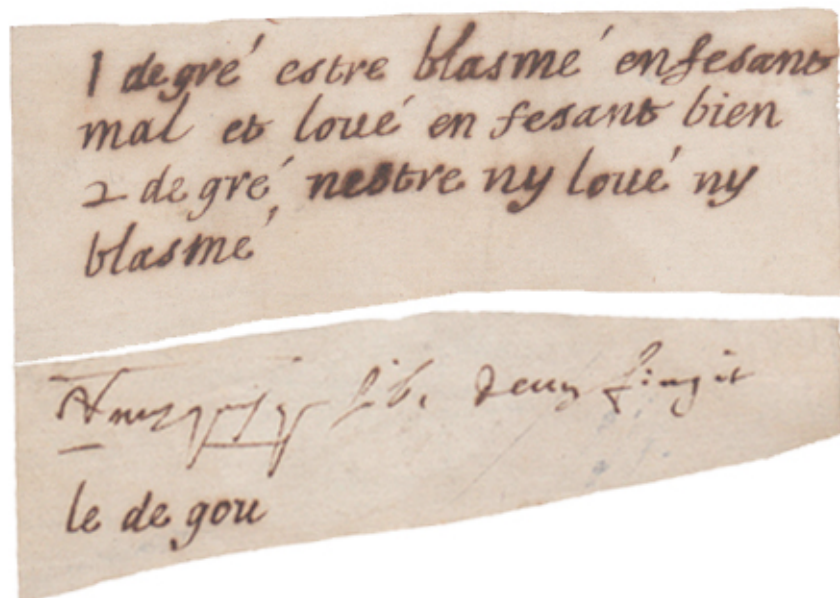 1 degré estre blasmé en fesant
mal et loué en fesant bien
2 degré, nestre ny loué ny
blasmé
sib. deus fingit
le degou